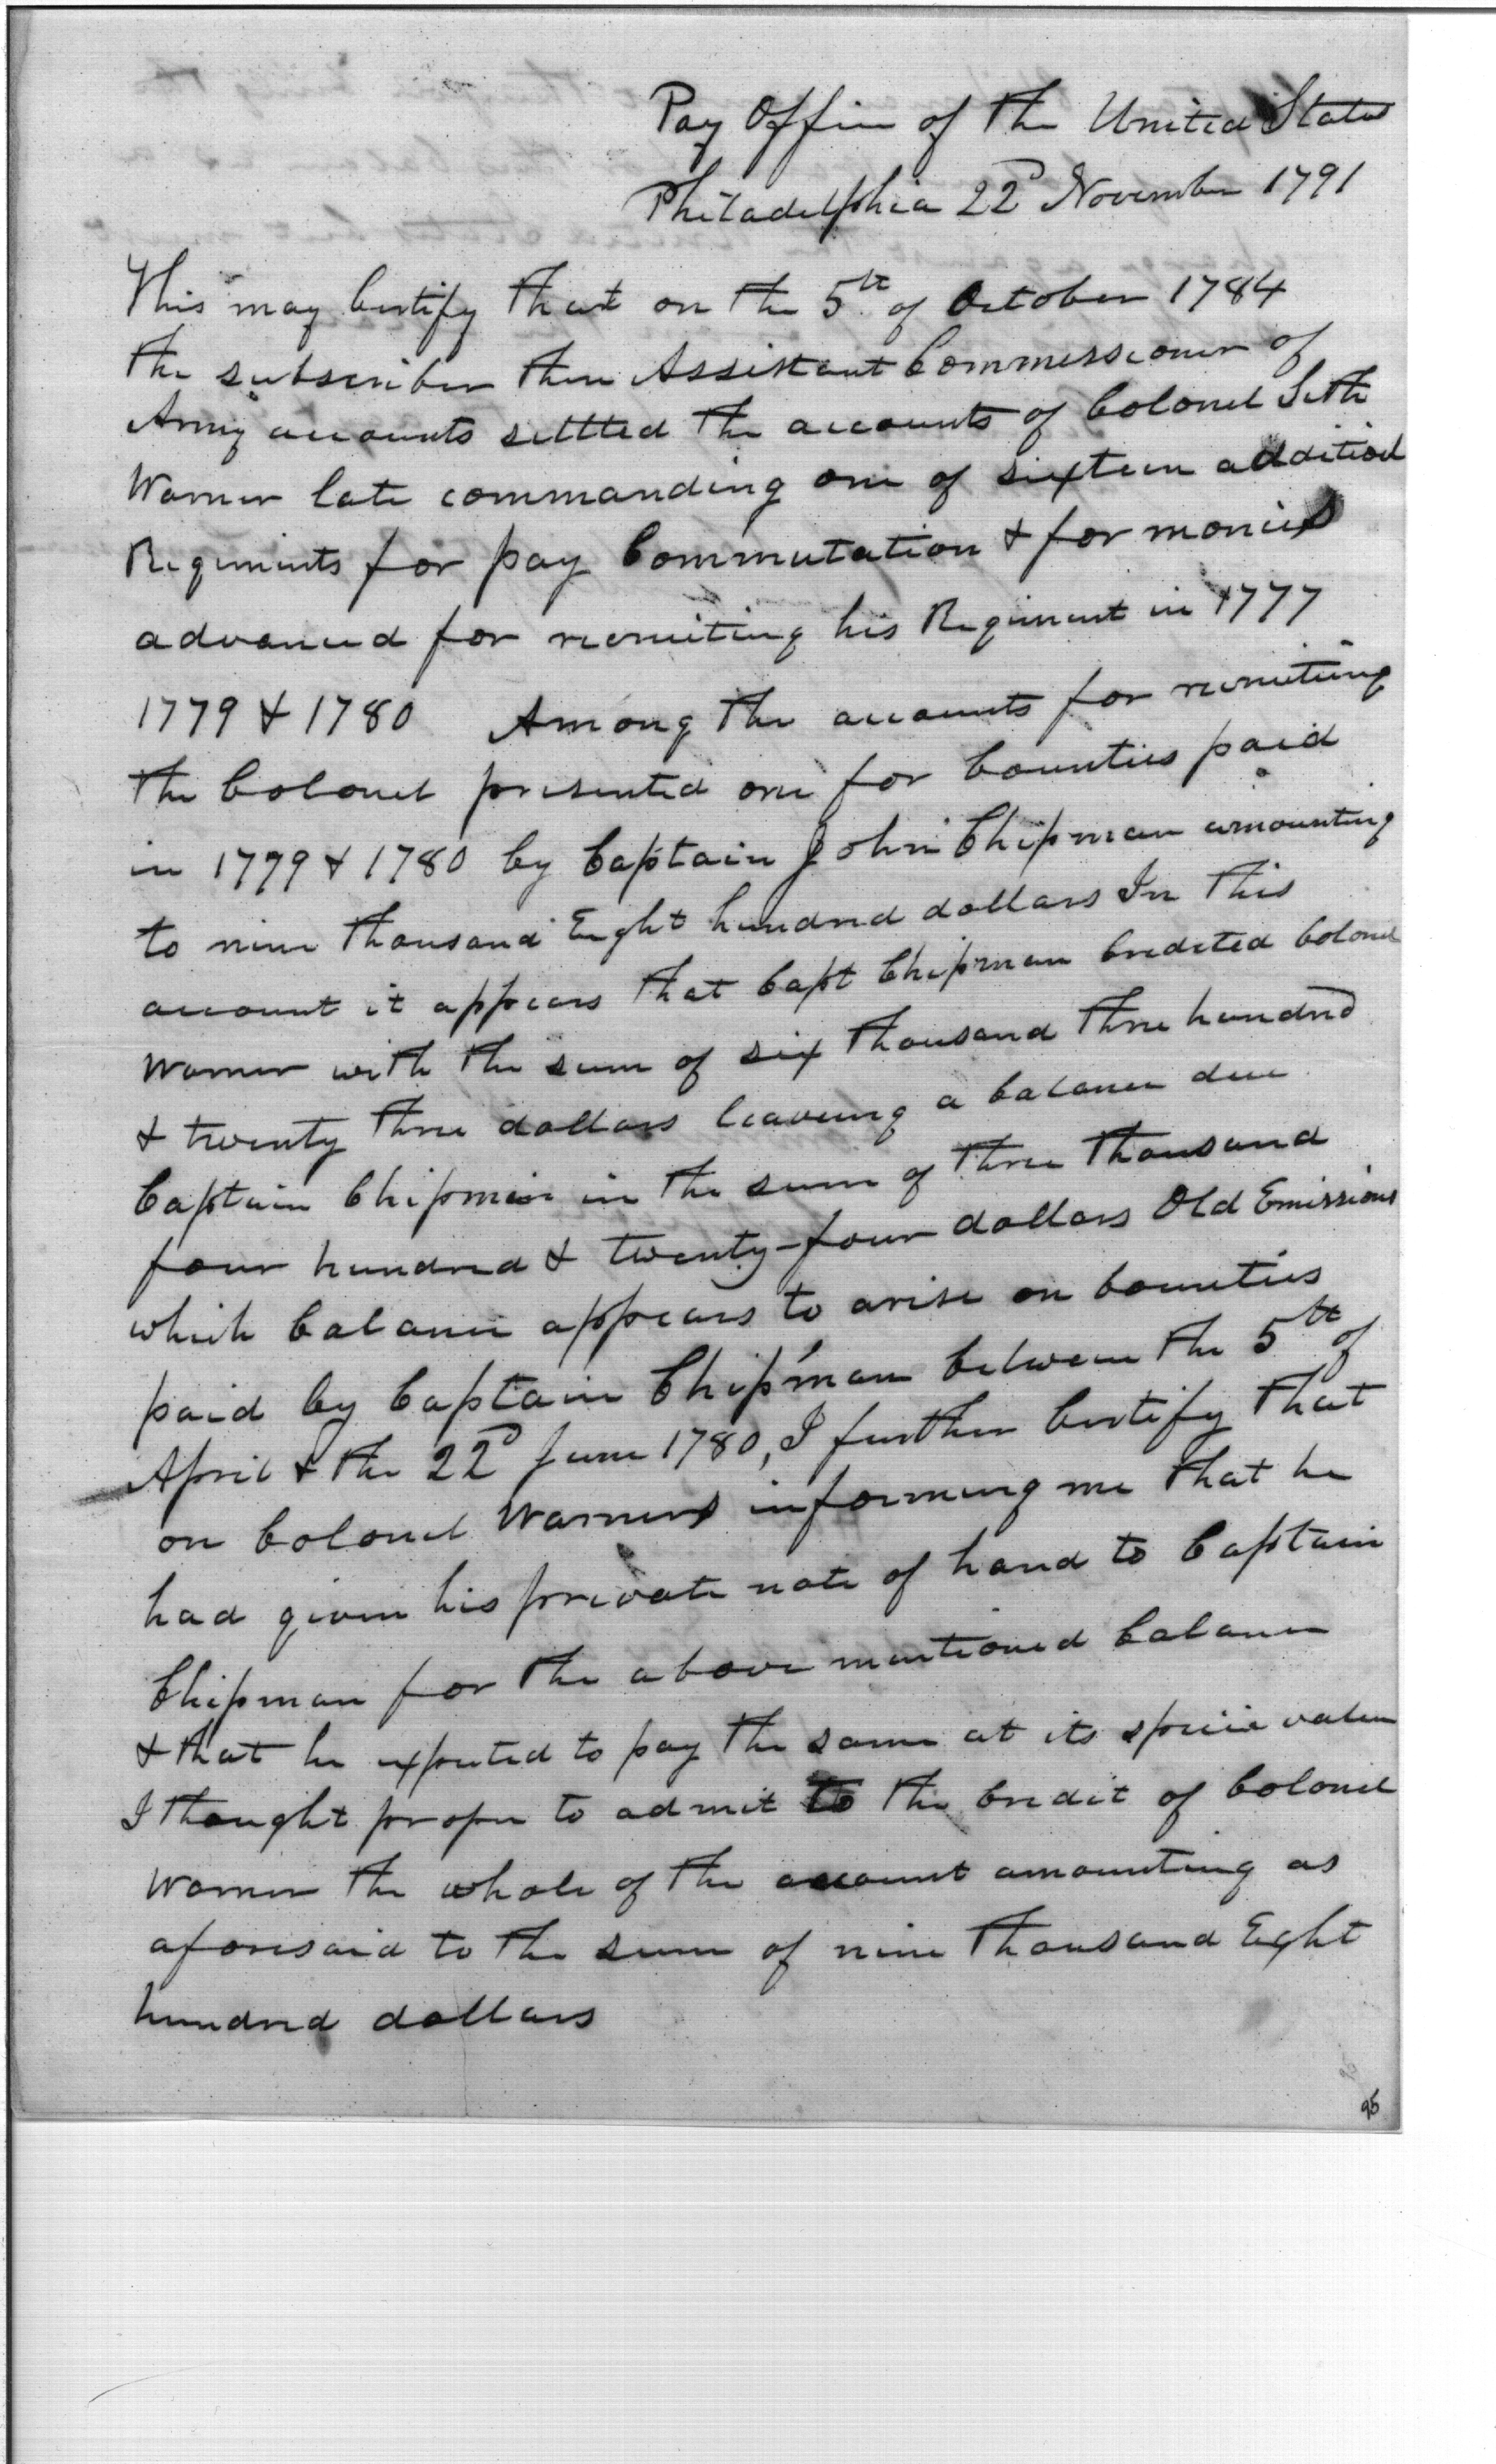 Pay Office of the United States
Philadelphia 22d November 1791
This may Certify that on the 5th of October 1784
the subscriber then Assistant Commissioner of
Army accounts settled the accounts of Colonel Seth
Warner late commanding one of sixteen additiol
Regiments for pay Commutation & for monies
advanced for recruiting his Regiment in 1777
1779 & 1780 Among the accounts for recruiting
the Colonel presented one for bounties paid
in 1779 & 1780 by Captain John Chipman amounting
to nine thousand Eight hundred dollars In this
account it appears that Capt Chipman Credited Colonel
Warner with the sum of six thousand three hundred
& twenty three dollars leaving a balance due
Captain Chipman in the sum of three thousand
four hundred & twenty-four dollars Old Emissions
which balance appears to arise on bounties
paid by Captain Chipman between the 5th of
April & the 22d June 1780, I further Certify that
on Colonel Warners informing me that he
had given his private note of hand to Captain
Chipman for the above mentioned balance
& that he expected to pay the same at its specie value
I thought proper to admit to the Credit of Colonel
Warner the whole of the account amounting as
aforesaid to the sum of nine thousand Eight
hundred dollars
95